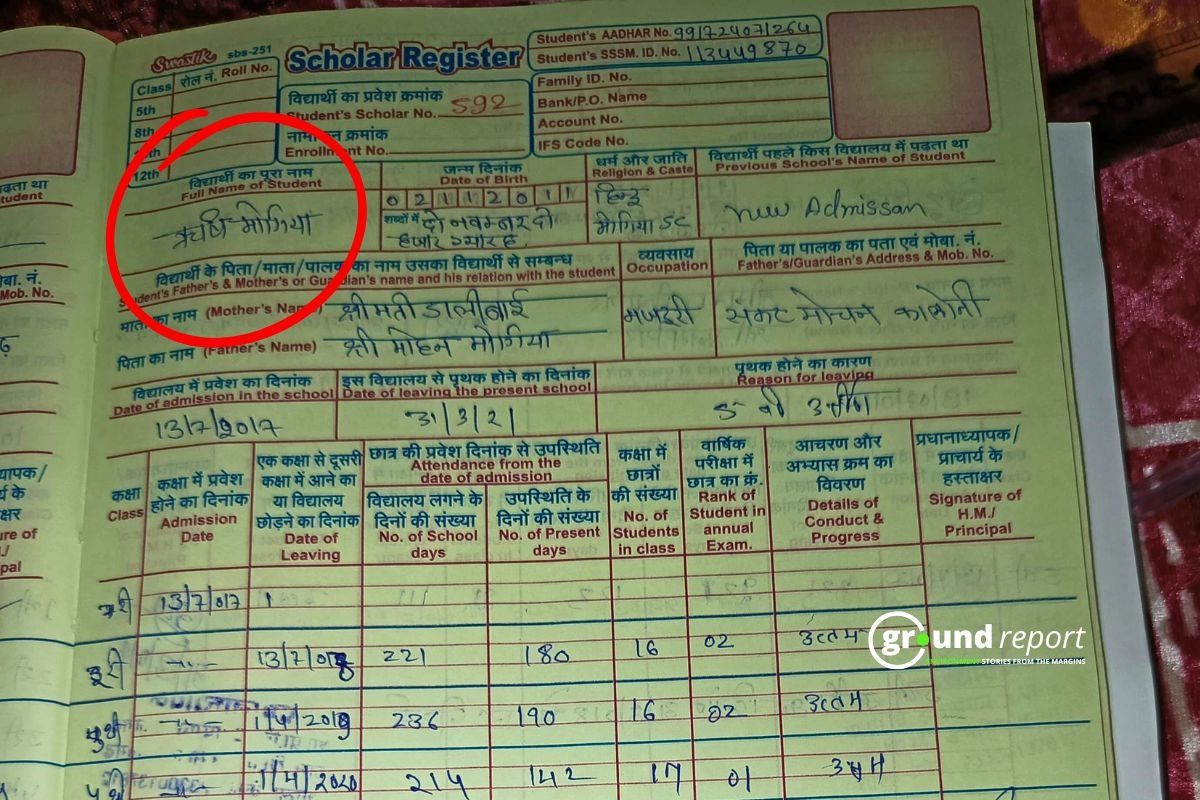 Swastik sbs-251
Scholar Register
Class रोल नं. Roll No.
5th
8th
12th
विद्यार्थी का प्रवेश क्रमांक
Student's Scholar No. 592
नामांकन क्रमांक
Enrollment No.
Student's AADHAR No. 991724071264
Student's SSSM. ID. No. 113449870
Family ID. No.
Bank/P.O. Name
Account No.
IFS Code No.
विद्यार्थी का पूरा नाम
Full Name of Student
ऋषि मोगिया
जन्म दिनांक
Date of Birth
02112011
शब्दों में दो नवम्बर दो
हजार ग्यारह
धर्म और जाति
Religion & Caste
हिन्दू
मोगिया SC
विद्यार्थी पहले किस विद्यालय में पढ़ता था
Previous School's Name of Student
new Admissan
विद्यार्थी के पिता/माता/पालक का नाम उसका विद्यार्थी से सम्बन्ध
Student's Father's & Mother's or Guardian's name and his relation with the student
माता का नाम (Mother's Name) श्रीमती डालीबाई
पिता का नाम (Father's Name) श्री मोहन मोगिया
व्यवसाय
Occupation
मजदूरी
पिता या पालक का पता एवं मोबा. नं.
Father's/Guardian's Address & Mob. No.
संकट मोचन कालोनी
विद्यालय में प्रवेश का दिनांक
Date of admission in the school
13/7/2017
इस विद्यालय से पृथक होने का दिनांक
Date of leaving the present school
31/3/21
पृथक होने का कारण
Reason for leaving
5 वी उत्तीर्ण
कक्षा
Class
कक्षा में प्रवेश
होने का दिनांक
Admission
Date
एक कक्षा से दूसरी
कक्षा में आने का
या विद्यालय
छोड़ने का दिनांक
Date of
Leaving
छात्र की प्रवेश दिनांक से उपस्थिति
Attendance from the
date of admission
विद्यालय लगने के
दिनों की संख्या
No. of School
days
उपस्थिति के
दिनों की संख्या
No. of Present
days
कक्षा में
छात्रों
की संख्या
No. of
Students
in class
वार्षिक
परीक्षा में
छात्र का क्र.
Rank of
Student in
annual
Exam.
आचरण और
अभ्यास क्रम का
विवरण
Details of
Conduct &
Progress
प्रधानाध्यापक/
प्राचार्य के
हस्ताक्षर
Signature of
H.M./
Principal
13/7/017
13/7/018 221 180 16 02 उत्तम
1/4/2019 236 190 16 02 उत्तम
1/4/2020 214 142 17 01 उत्तम
ground report
STORIES FROM THE MARGINS